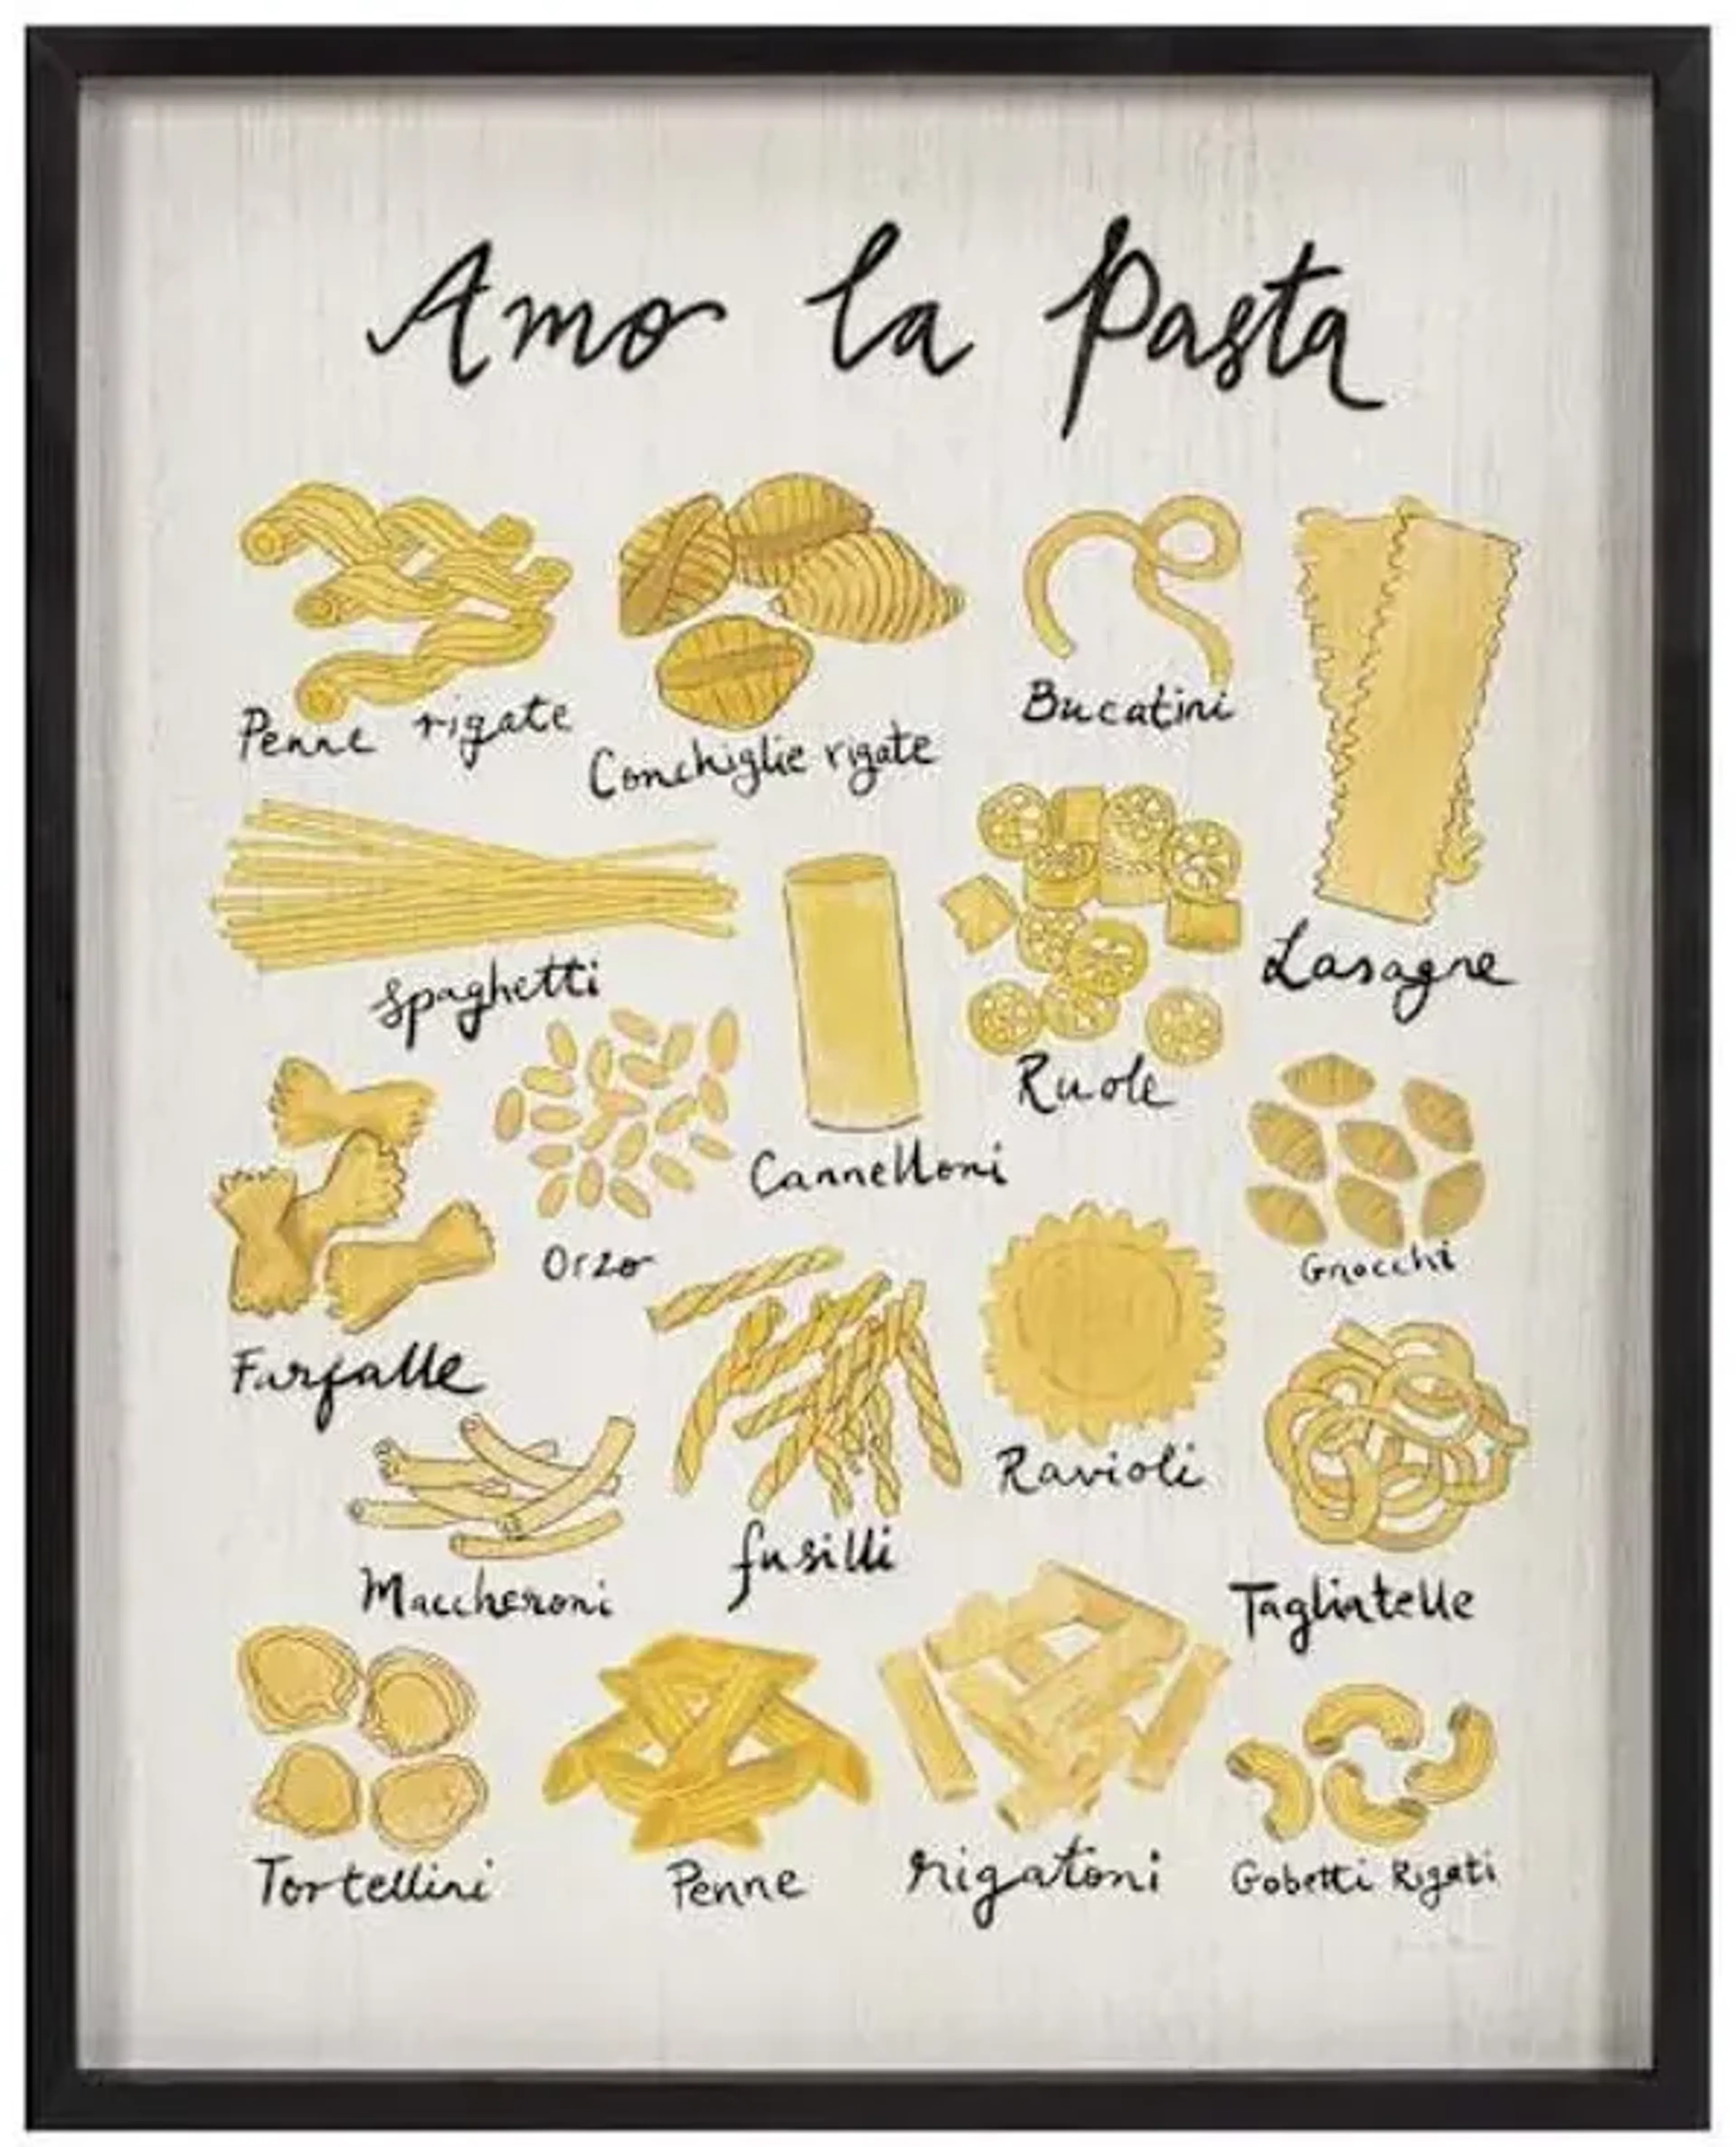 Amo la Pasta
Penne rigate
Conchiglie rigate
Bucatini
Spaghetti
Cannelloni
Ruole
Lasagne
Farfalle
Orzo
Gnocchi
Maccheroni
fusilli
Ravioli
Tagliatelle
Tortellini
Penne
rigatoni
Gobetti Rigati